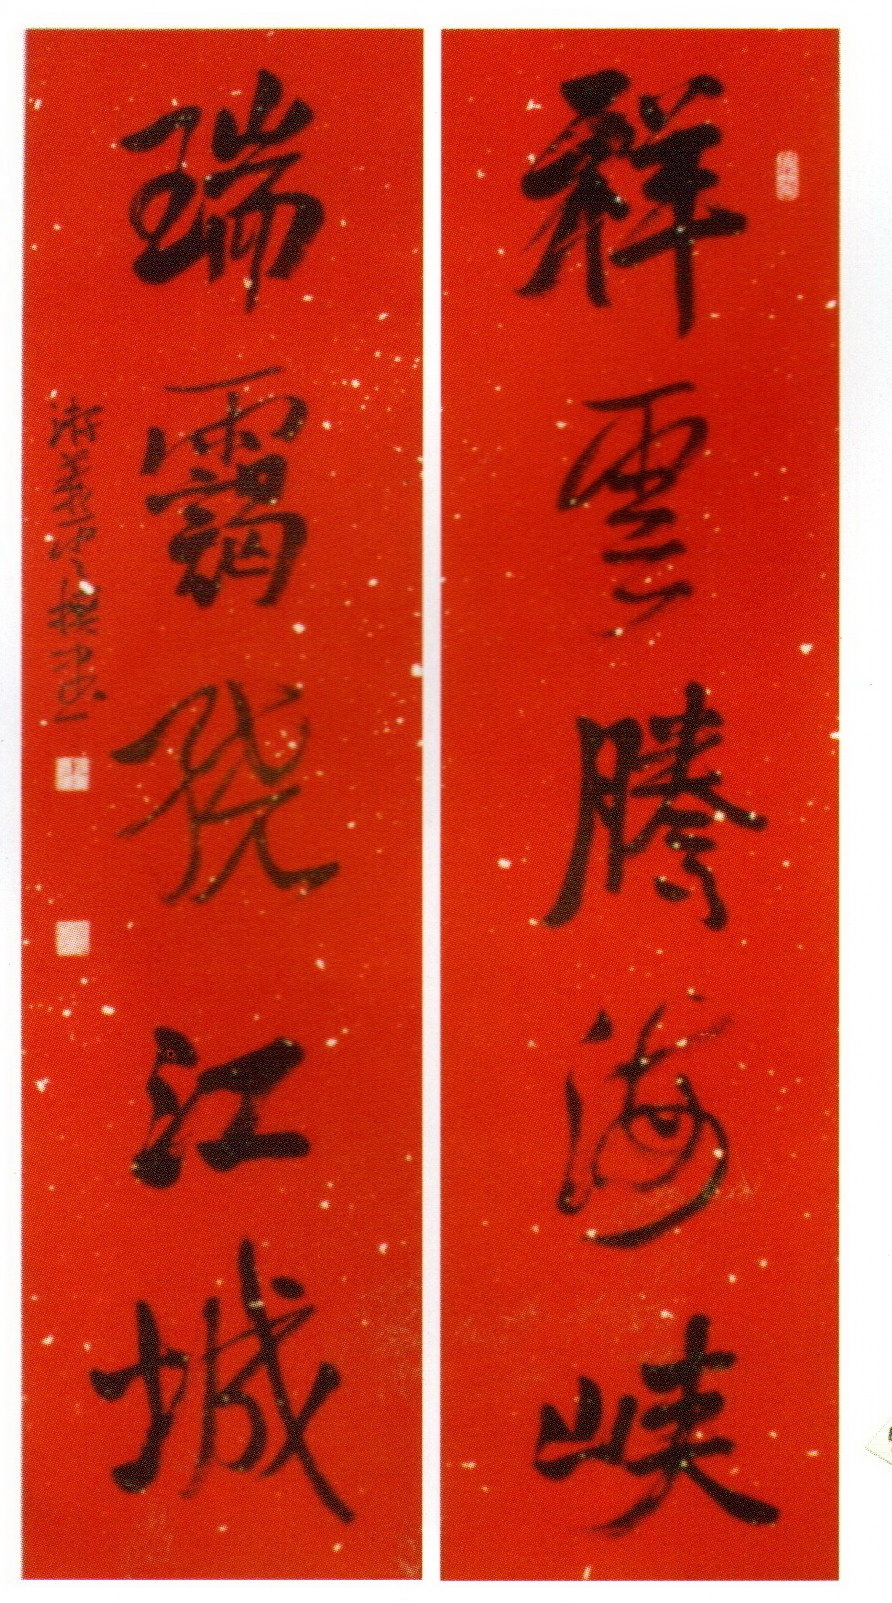 祥雲騰海峡
瑞靄繞江城